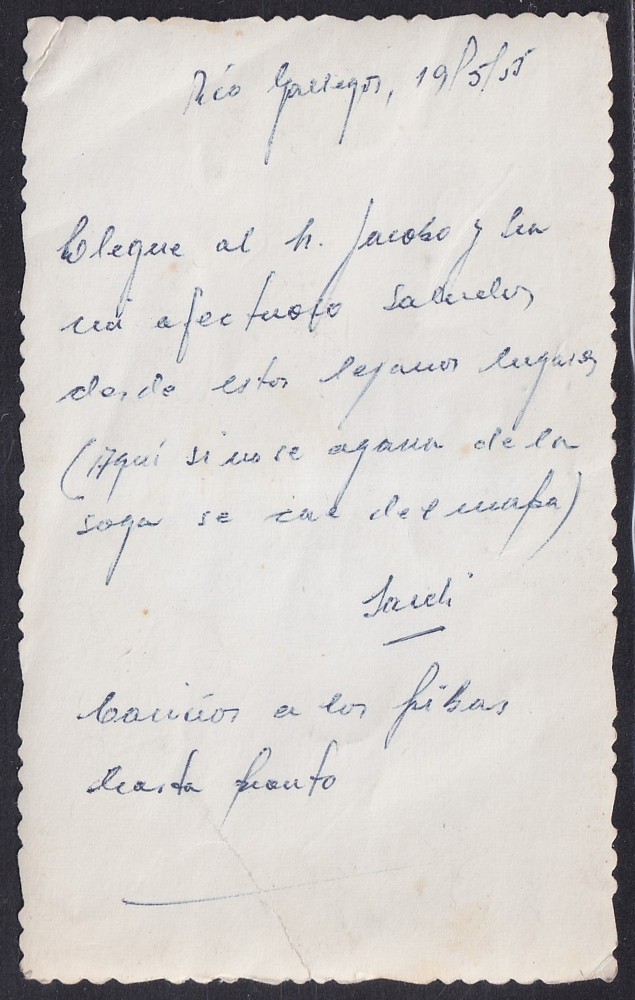 Río Gallegos, 19/5/55
llegue al h. Jacobo y
mi afectuoso saludos
desde estos lejanos lugares
(Aqui si no se agarra de la
soga se cae del mapa)
Cariños a los pibas
hasta pronto